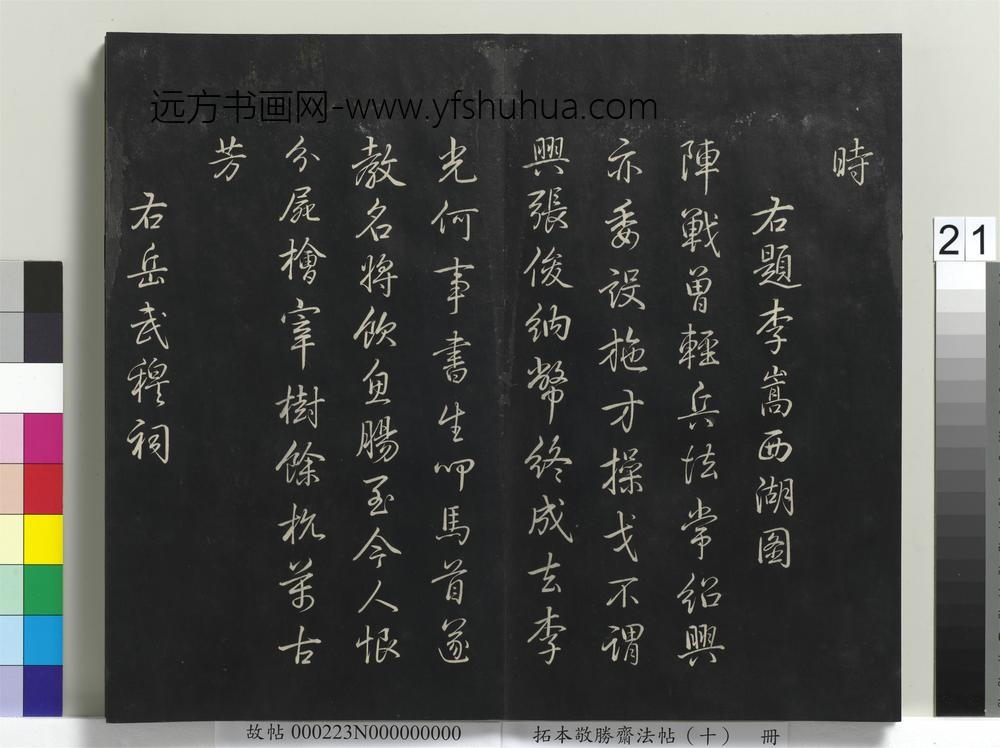 远方书画网-www.yfshuhua.com
時
右題李嵩西湖图
陣戰曾輕兵法常紹興
亦委設施才操戈不謂
興張俊納幣終成去李
光何事書生叩馬首遂
教名將飲魚腸至今人恨
分屍檜宰樹餘杭萬古
芳
右岳武穆祠
21
故帖 000223N000000000
拓本敬勝齋法帖（十） 冊